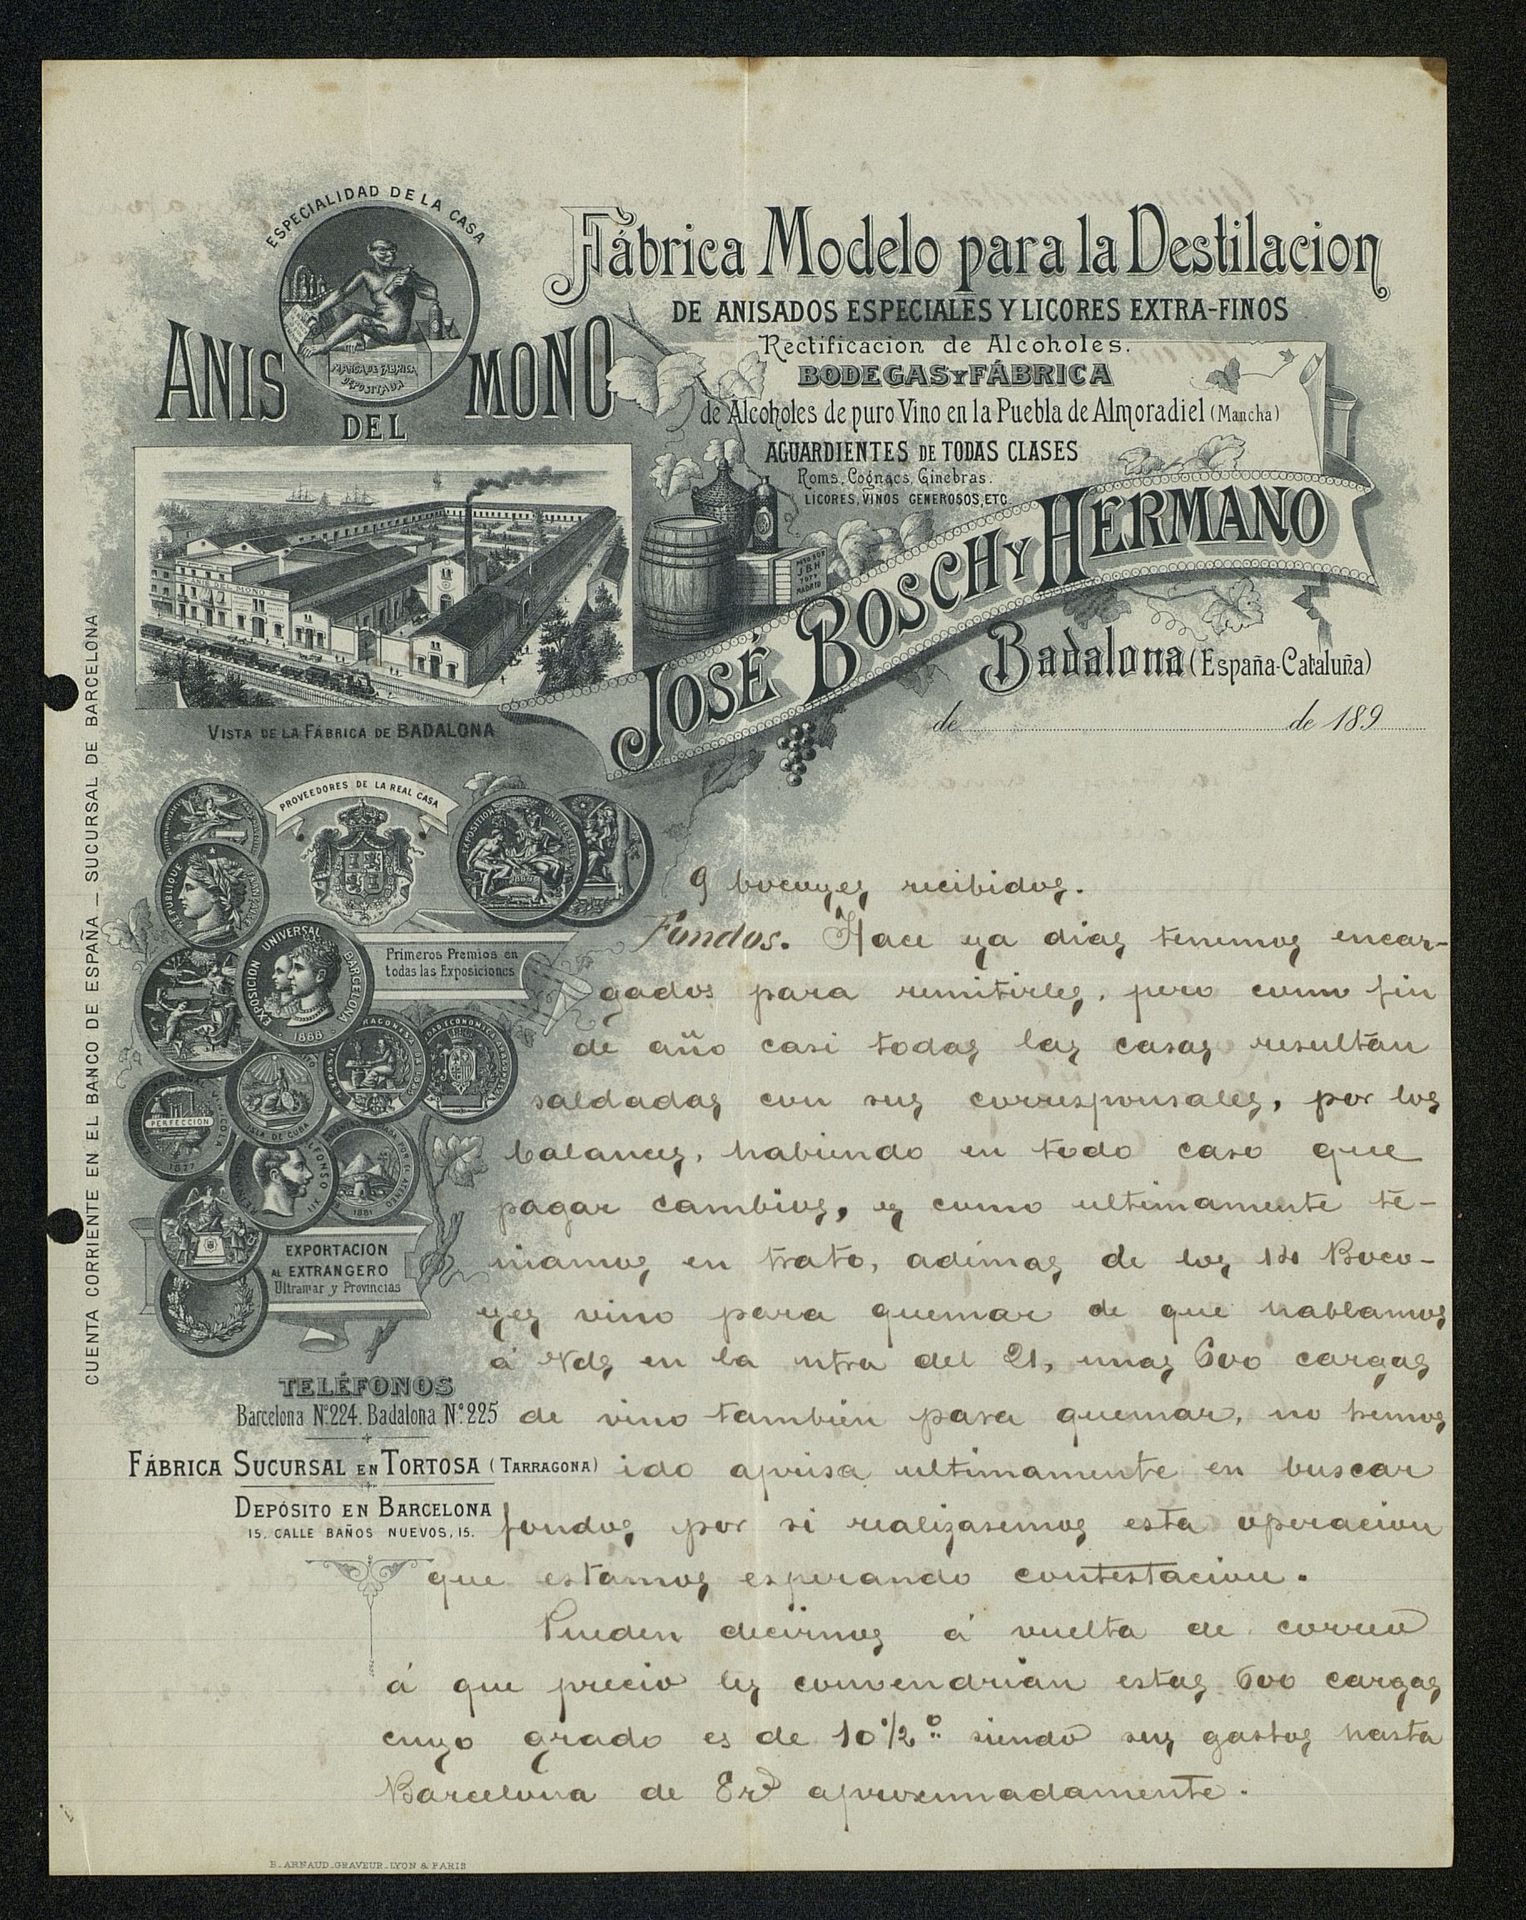 ESPECIALIDAD DE LA CASA
MARCA DE FÁBRICA
DEPOSITADA
ANIS DEL MONO
Fábrica Modelo para la Destilacion
DE ANISADOS ESPECIALES Y LICORES EXTRA-FINOS
Rectificacion de Alcoholes.
BODEGAS Y FÁBRICA
de Alcoholes de puro Vino en la Puebla de Almoradiel (Mancha)
AGUARDIENTES DE TODAS CLASES
Roms, Cognacs, Ginebras.
LICORES, VINOS GENEROSOS, ETC.
J.B.H
MADRID
JOSÉ BOSCH Y HERMANO
Badalona (España-Cataluña)
de de 189
ANIS DEL MONO
VISTA DE LA FÁBRICA DE BADALONA
CUENTA CORRIENTE EN EL BANCO DE ESPAÑA _ SUCURSAL DE BARCELONA
PROVEEDORES DE LA REAL CASA
REPUBLIQUE FRANÇAISE
EXPOSITION UNIVERSELLE
EXPOSICION UNIVERSAL BARCELONA
1888
Primeros Premios en
todas las Exposiciones
PERFECCION
1877
ISLA DE CUBA
ALFONSO XII
1881
EXPORTACION
AL EXTRANGERO
Ultramar y Provincias
TELÉFONOS
Barcelona Nº 224. Badalona Nº 225
FÁBRICA SUCURSAL EN TORTOSA (TARRAGONA)
DEPÓSITO EN BARCELONA
15, CALLE BAÑOS NUEVOS, 15.
9 bocoyes recibidos.
Fondos. Hace ya dias tenemos encar-
gados para remitirles, pero como fin
de año casi todas las casas resultan
saldadas con sus corresponsales, por los
balances, habiendo en todo caso que
pagar cambios, y como ultimamente te-
niamos en trato, además de los 14 Boco-
yes vino para quemar de que hablamos
á Vds en la ntra del 21, unas 600 cargas
de vino tambien para quemar, no hemos
ido aprisa ultimamente en buscar
fondos por si realizasemos esta operacion
que estamos esperando contestacion.
Pueden decirnos á vuelta de correo
á que precio les convendrian estas 600 cargas
cuyo grado es de 10 1/2º siendo sus gastos hasta
Barcelona de 8 rs aproximadamente.
B. ARNAUD_GRAVEUR_LYON & PARIS